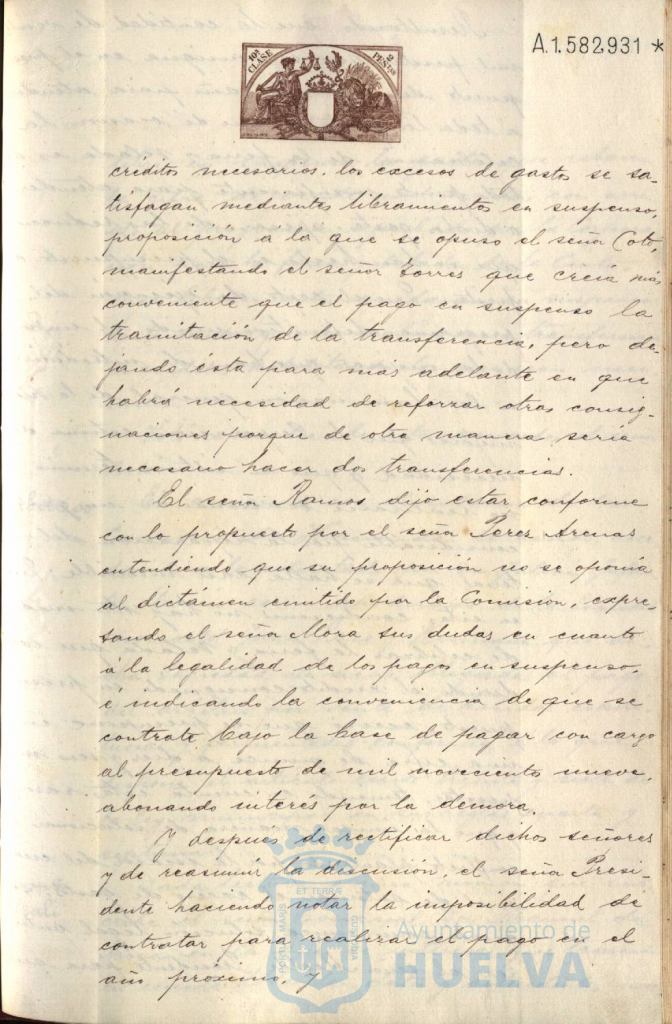 A.1.582,931 *
10ª CLASE 2 PESETAS
créditos necesarios, los excesos de gastos se sa-
tisfagan mediantes libramientos en suspenso,
proposición á la que se opuso el señor Coto,
manifestando el señor Torres que creia más
conveniente que el pago en suspenso la
tramitación de la transferencia, pero de-
jando ésta para más adelante en que
habrá necesidad de reforzar otras consig-
naciones porque de otra manera seria
necesario hacer dos transferencias.
El señor Ramos dijo estar conforme
con lo propuesto por el señor Perez Arenas
entendiendo que su proposición no se oponia
al dictámen emitido por la Comisión, expre-
sando el señor Mora sus dudas en cuanto
á la legalidad de los pagos en suspenso,
é indicando la conveniencia de que se
contrate bajo la base de pagar con cargo
al presupuesto de mil novecientos nueve,
abonando interés por la demora.
Y después de rectificar dichos señores
y de reasumir la discusión, el señor Presi-
dente haciendo notar la imposibilidad de
contratar para realizar el pago en el
año próximo, y
PORTUS MARIS ET TERRÆ CUSTODIA
Ayuntamiento de
HUELVA